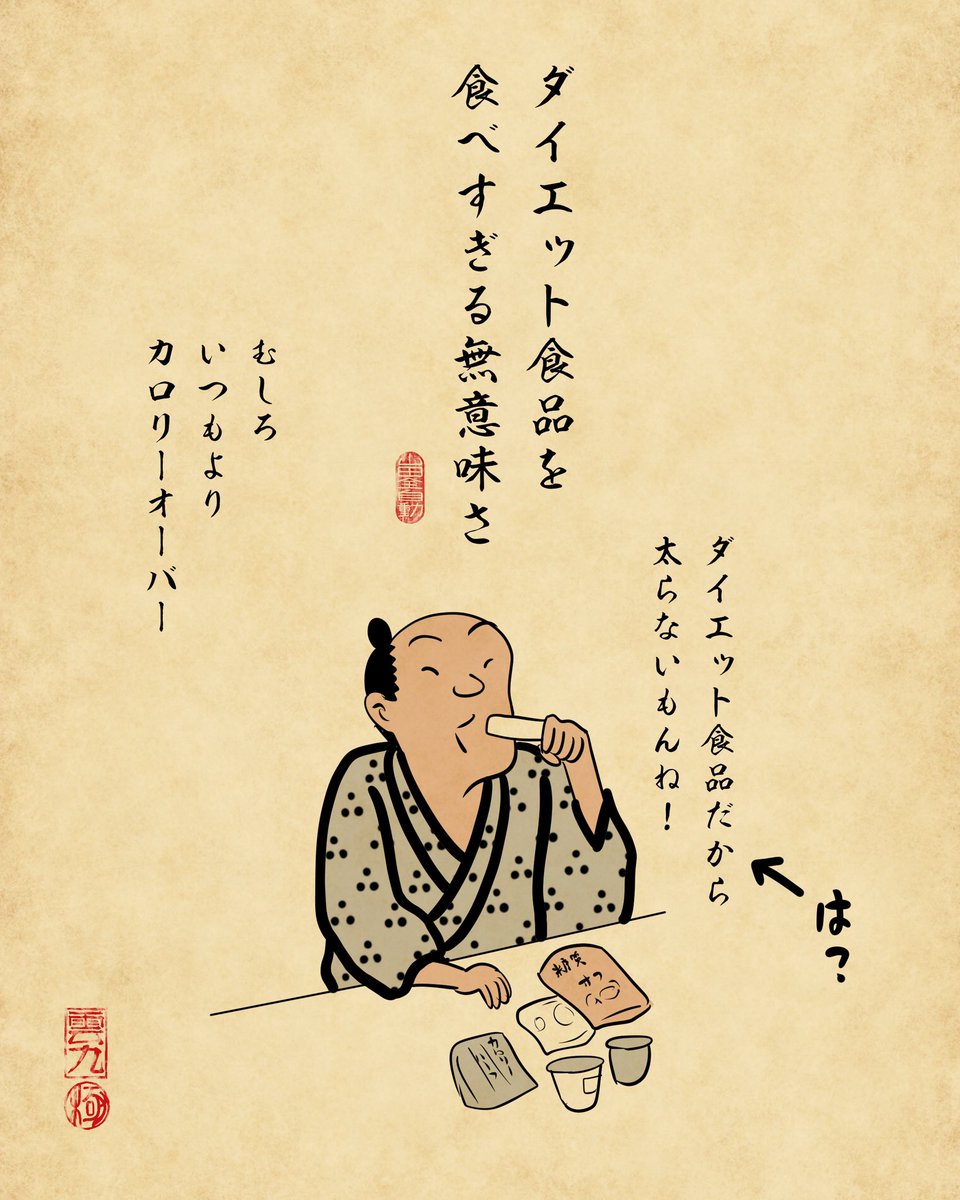 ダイエット食品を
食べすぎる無意味さ
ダイエット食品だから
太らないもんね！
は？
むしろ
いつもより
カロリーオーバー
糖質
オフ